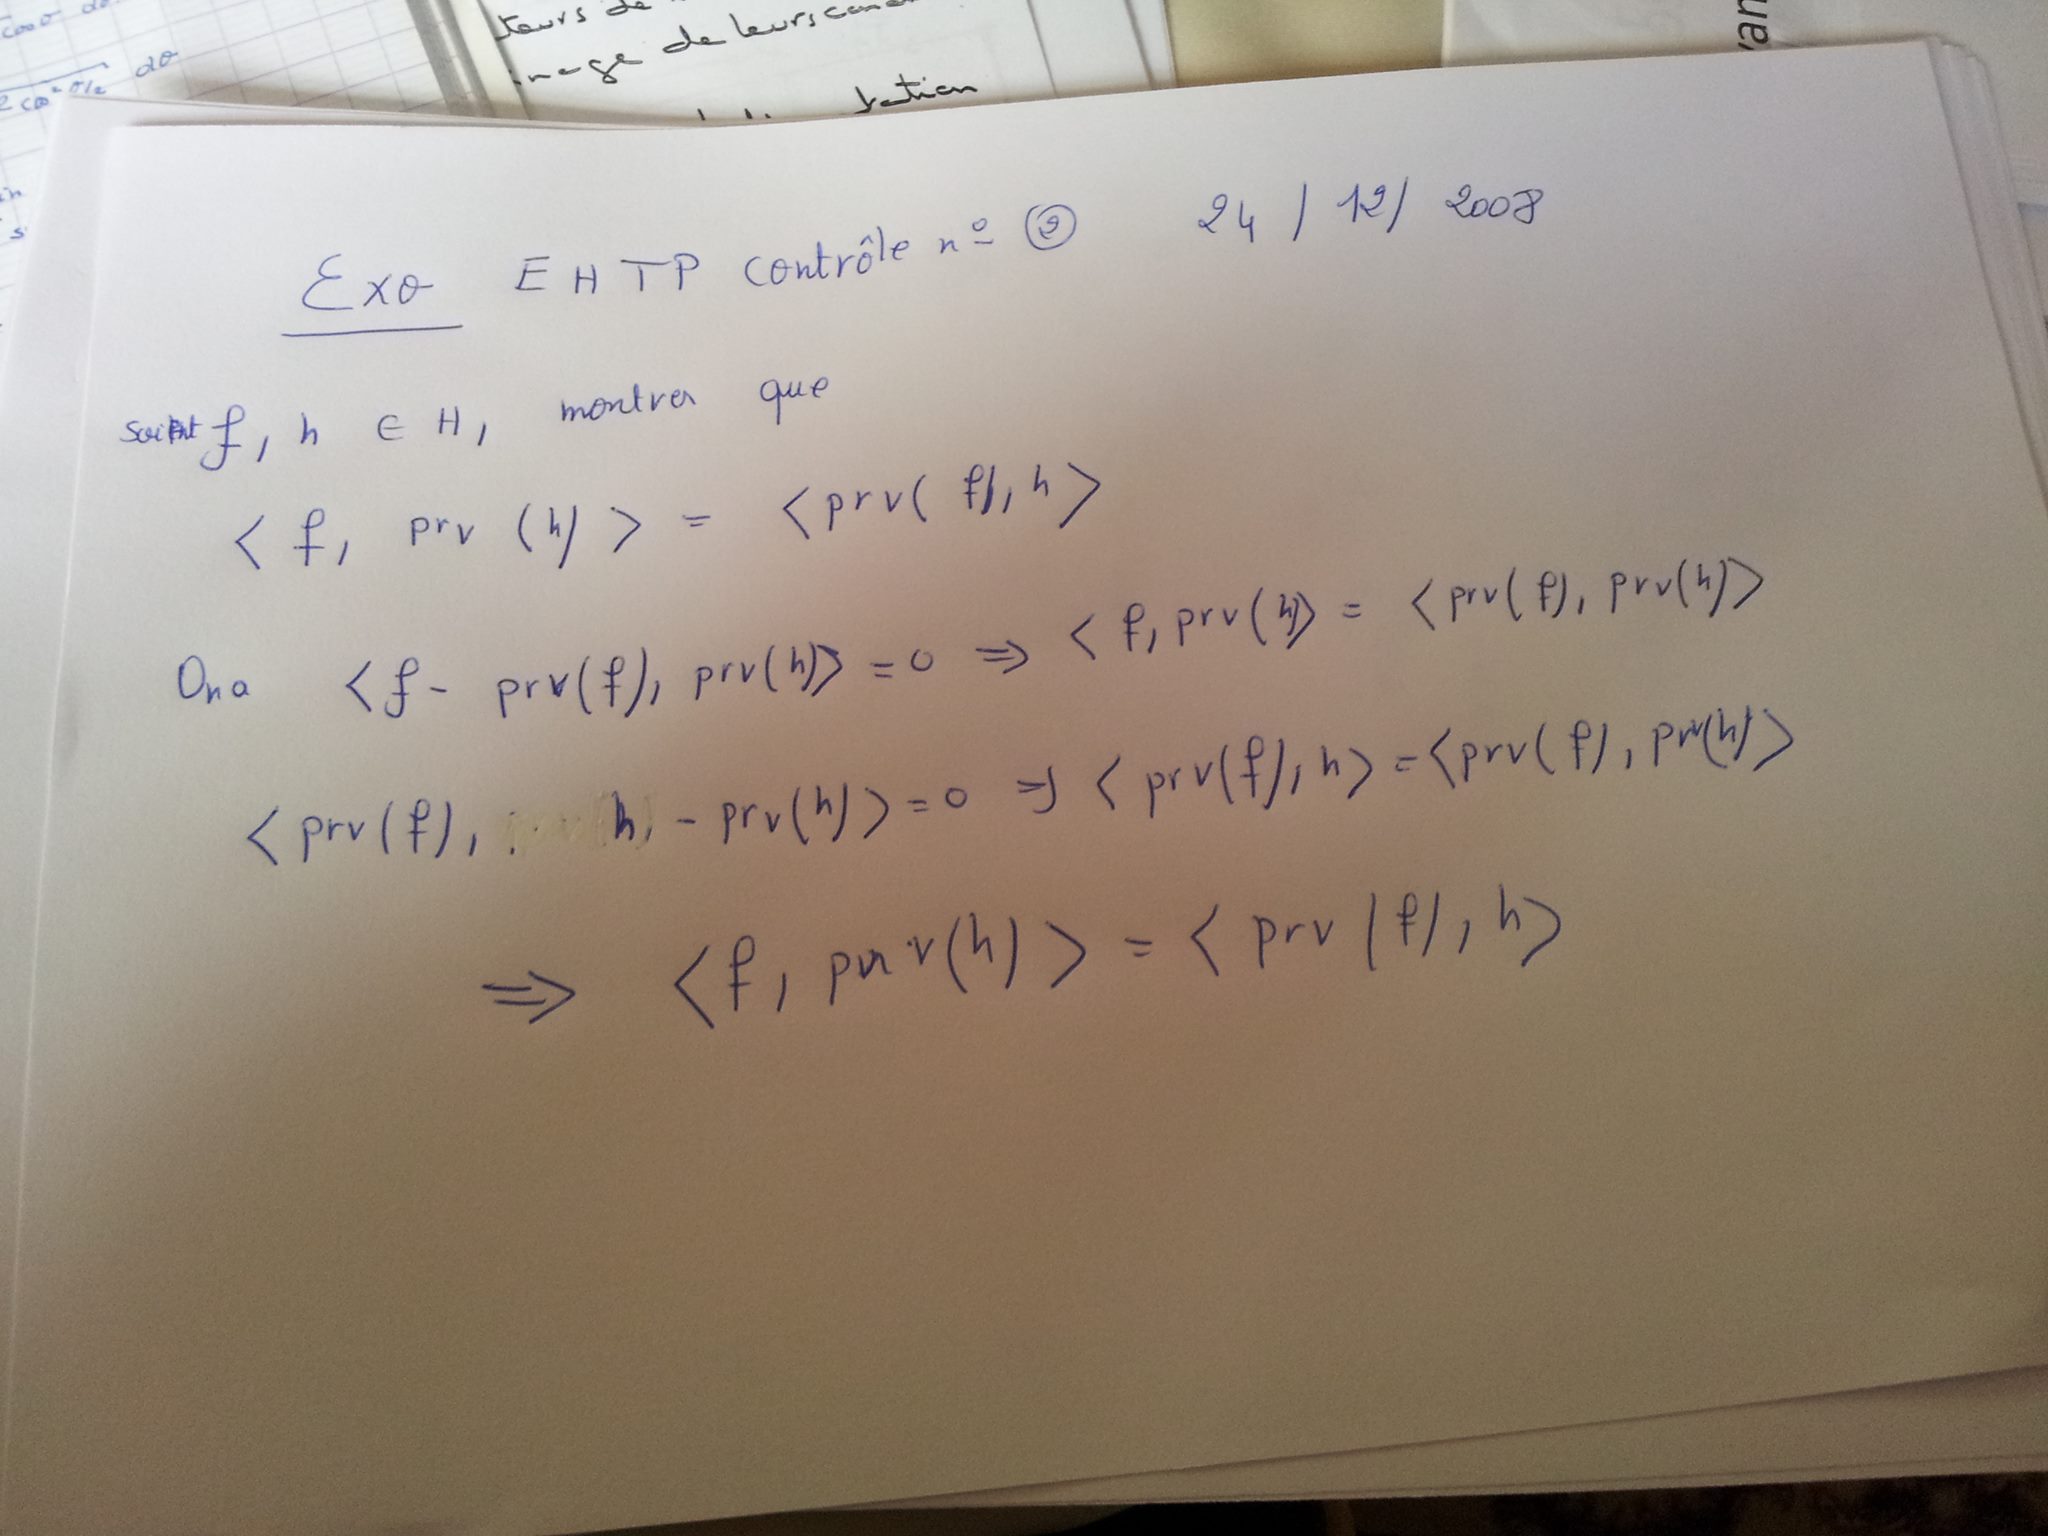 coso do
2 cos² θ/2 dθ
teurs de
image de leurs cana
tation
van
Exo EHTP contrôle n° ② 24/12/2008
soient f, h ∈ H, montrer que
< f, prv (h) > = < prv( f), h >
On a < f - prv(f), prv(h)> = 0 ⇒ < f, prv(h)> = < prv(f), prv(h)>
< prv(f), h - prv(h) > = 0 ⇒ < prv(f), h > = < prv(f), prv(h) >
⇒ < f, prv(h) > = < prv (f), h >